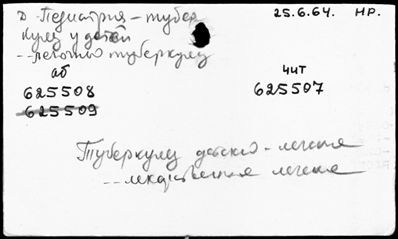 Д Педиатрия - тубер 25.6.64. НР.
кулез у детей
-- легочный туберкулез
аб чит
625508 625507
625509
Туберкулез детский - легкие
-- лекарственная легкие